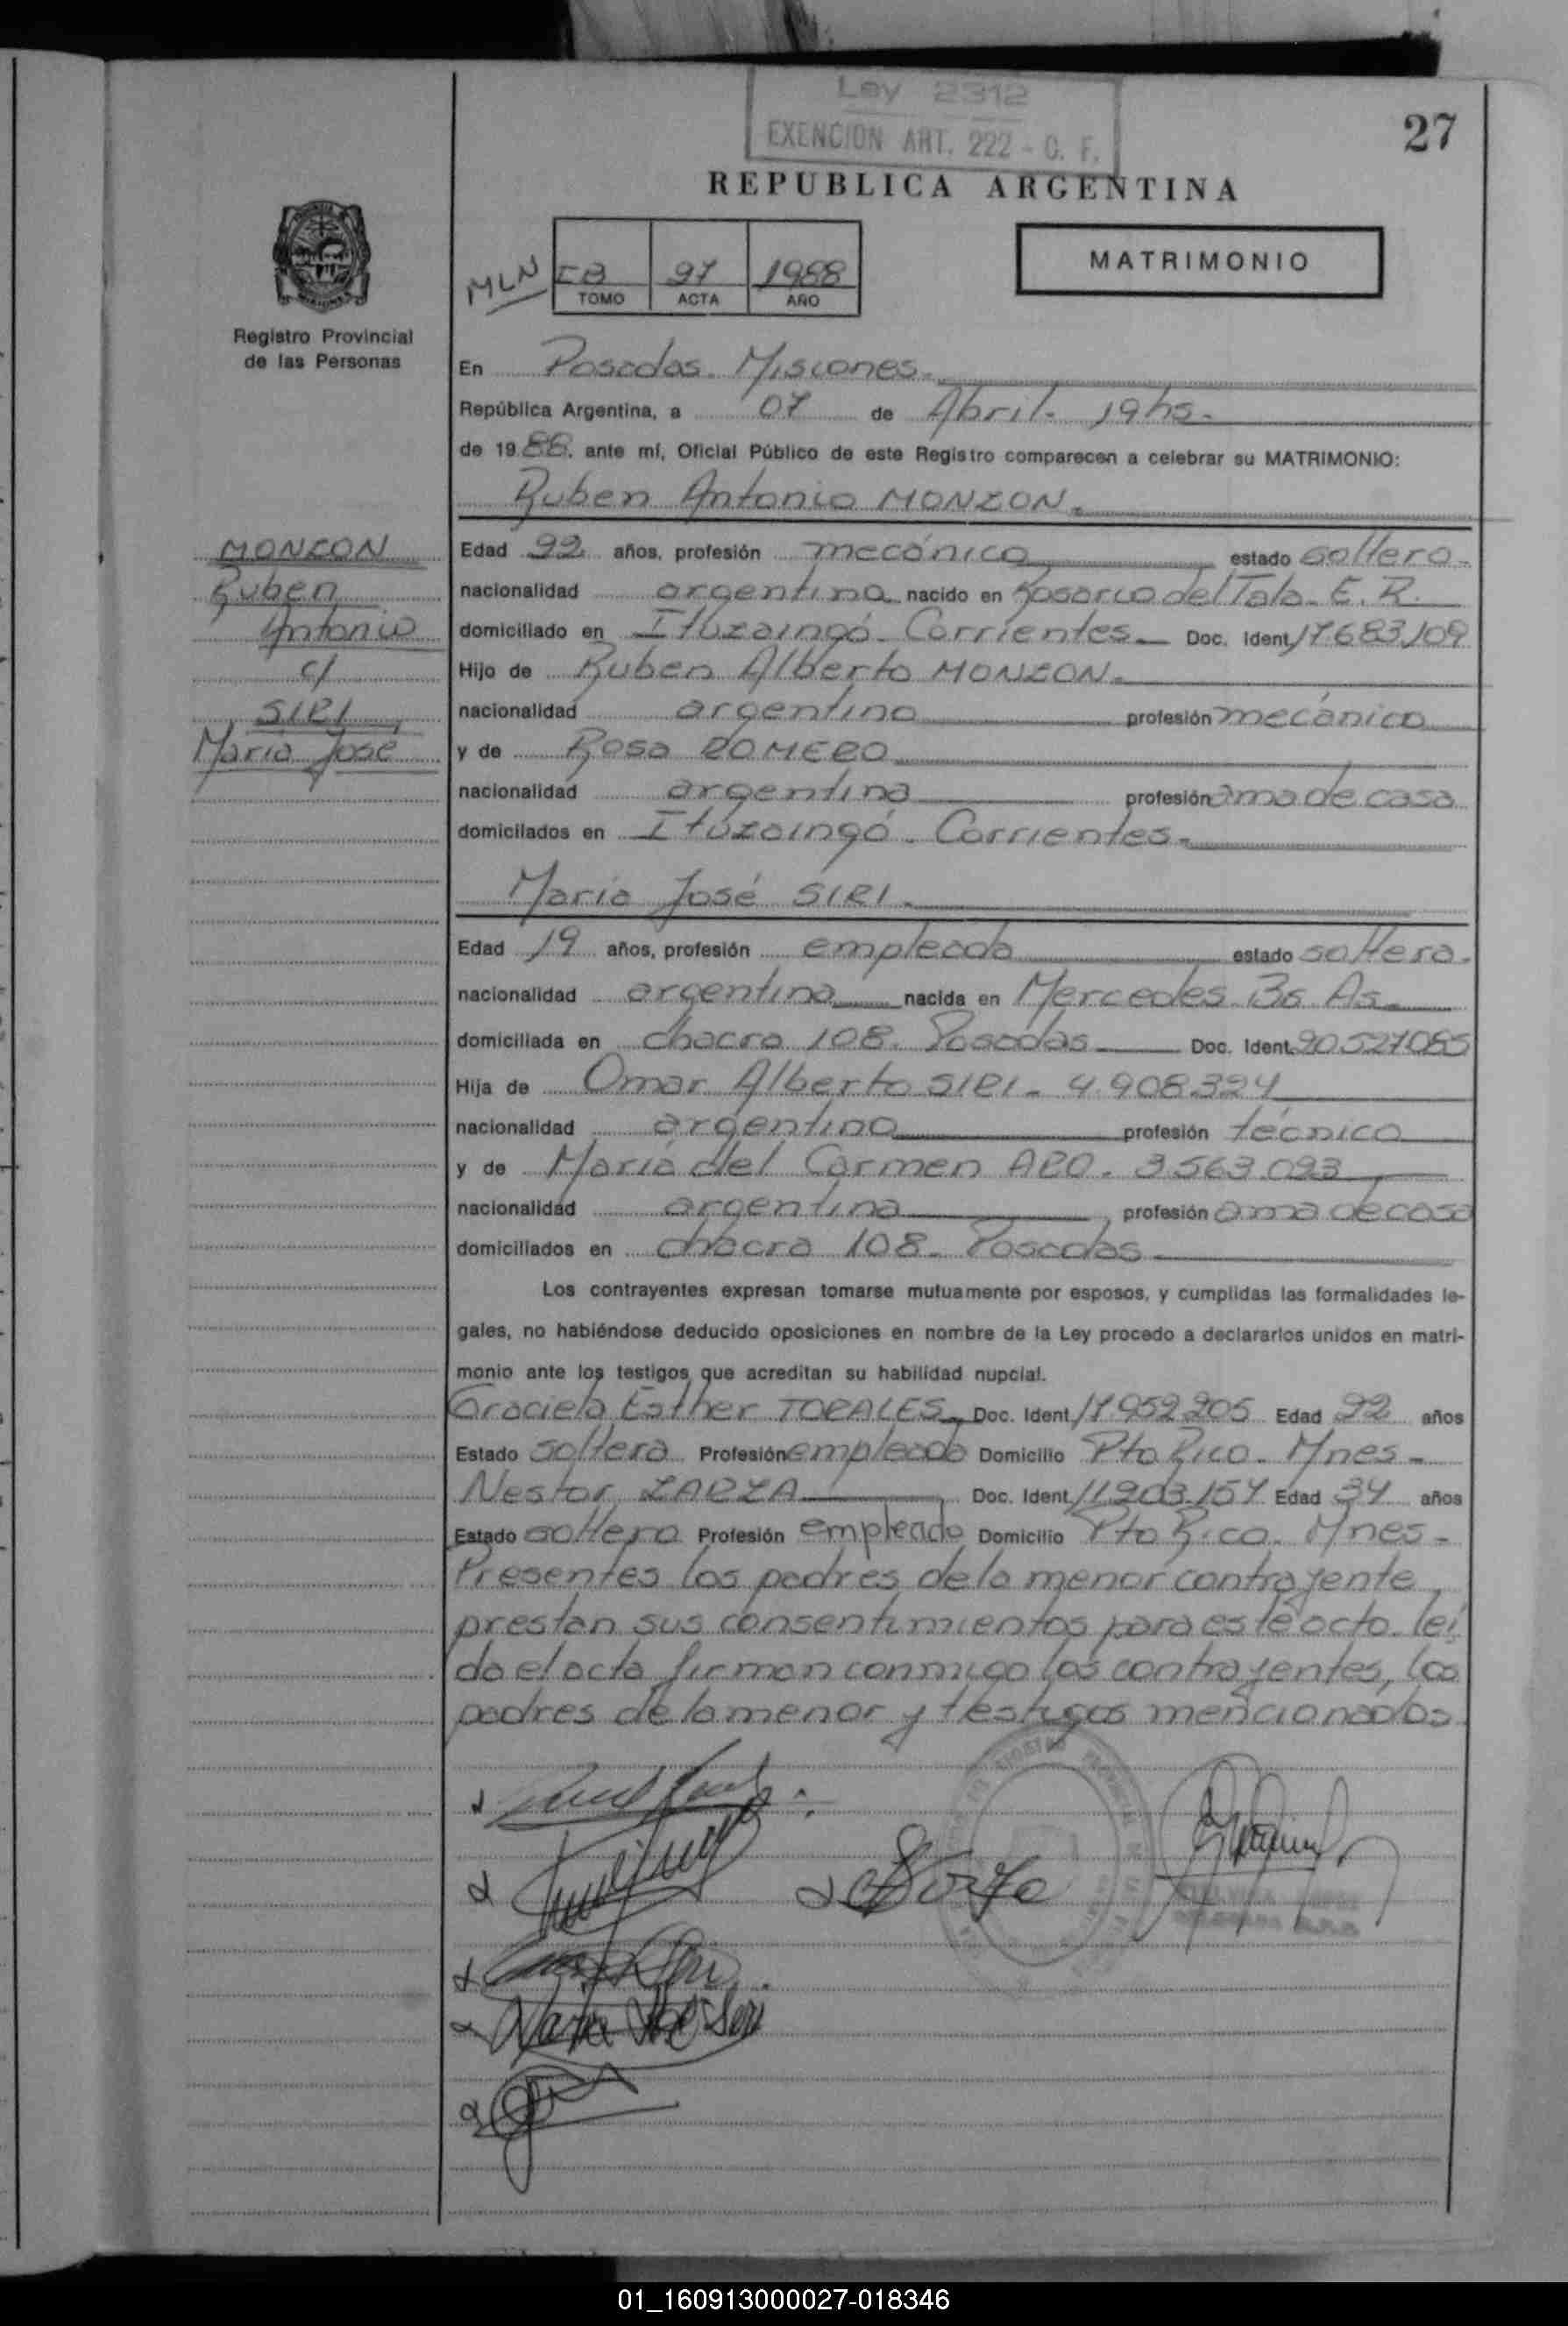 Ley 2312
EXENCION ART. 222 - C. F.
27
REPUBLICA ARGENTINA
MATRIMONIO
MLN
97 1988
TOMO ACTA AÑO
Registro Provincial
de las Personas
En Posadas. Misiones.
República Argentina, a 07 de Abril. 19hs.
de 1988. ante mí, Oficial Público de este Registro comparecen a celebrar su MATRIMONIO:
Ruben Antonio MONZON.
MONZON
Ruben
Antonio
c/
SIRI,
María José
Edad 22 años, profesión mecánico estado soltero.
nacionalidad argentina nacido en Rosario del Tala. E. R.
domiciliado en Itúzaingó. Corrientes. Doc. Ident. 17683109
Hijo de Ruben Alberto MONZON.
nacionalidad argentino profesión mecánico
y de Rosa ROMERO
nacionalidad argentina profesión ama de casa
domicilados en Itúzaingó. Corrientes.
María José SIRI.
Edad 19 años, profesión empleada estado soltera.
nacionalidad argentina nacida en Mercedes. Bs As.
domiciliada en chacra 108. Posadas Doc. Ident. 20.527085
Hija de Omar Alberto SIRI. 4.908.324
nacionalidad argentino profesión técnico
y de María del Carmen ARO. 3.563.023
nacionalidad argentina profesión ama de casa
domiciliados en chacra 108. Posadas
Los contrayentes expresan tomarse mutuamente por esposos, y cumplidas las formalidades le-
gales, no habiéndose deducido oposiciones en nombre de la Ley procedo a declararlos unidos en matri-
monio ante los testigos que acreditan su habilidad nupcial.
Graciela Esther TORALES. Doc. Ident. 17952205 Edad 22 años
Estado soltera Profesión empleada Domicilio Pto Rico. Mnes.
Nestor ZARZA Doc. Ident. 11.203.157 Edad 34 años
Estado soltero Profesión empleado Domicilio Pto Rico. Mnes.
Presentes los padres de la menor contrayente,
prestan sus consentimientos para este acto. leí
da el acta firman conmigo los contrayentes, los
padres de la menor y testigos mencionados
María José Siri
01_160913000027-018346